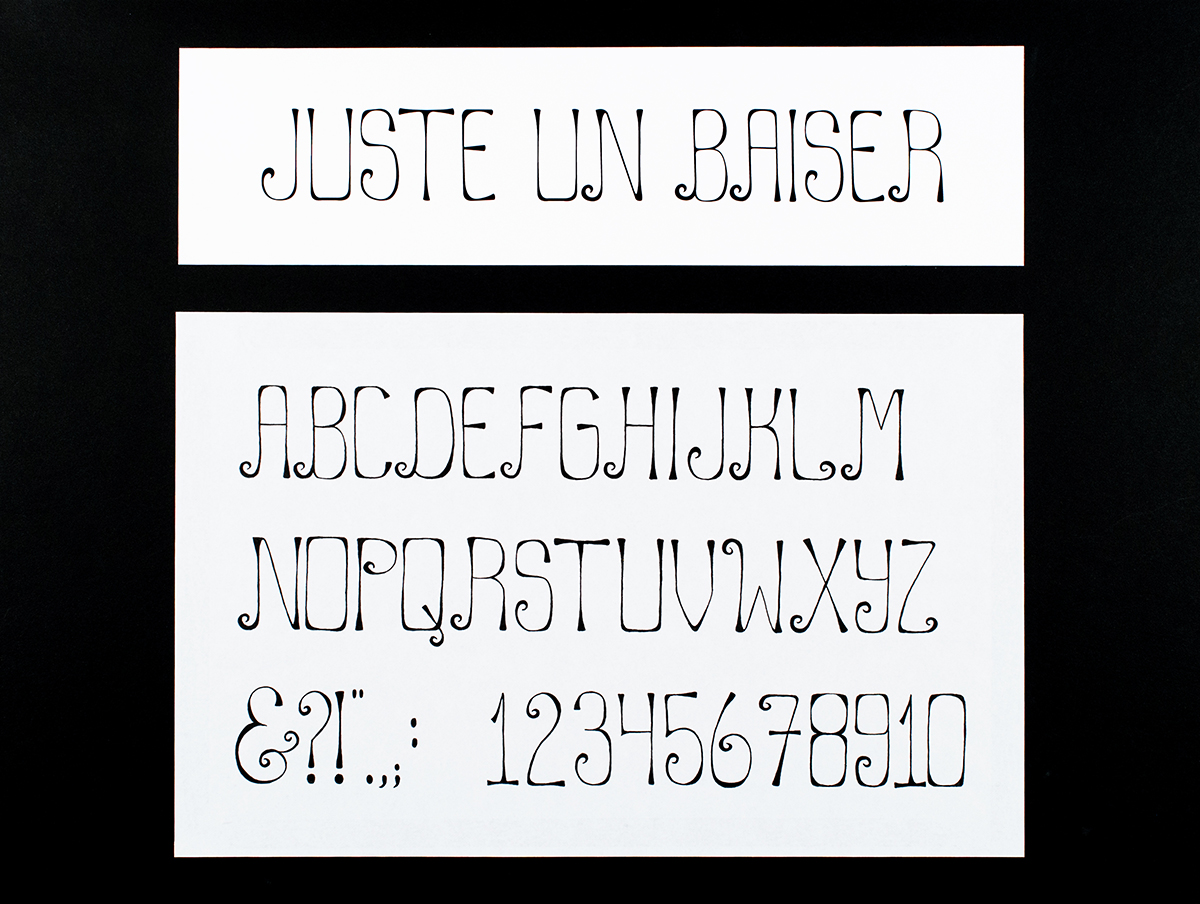 JUSTE UN BAISER
ABCDEFGHIJKLM
NOPQRSTUVWXYZ
&?!".,;: 12345678910